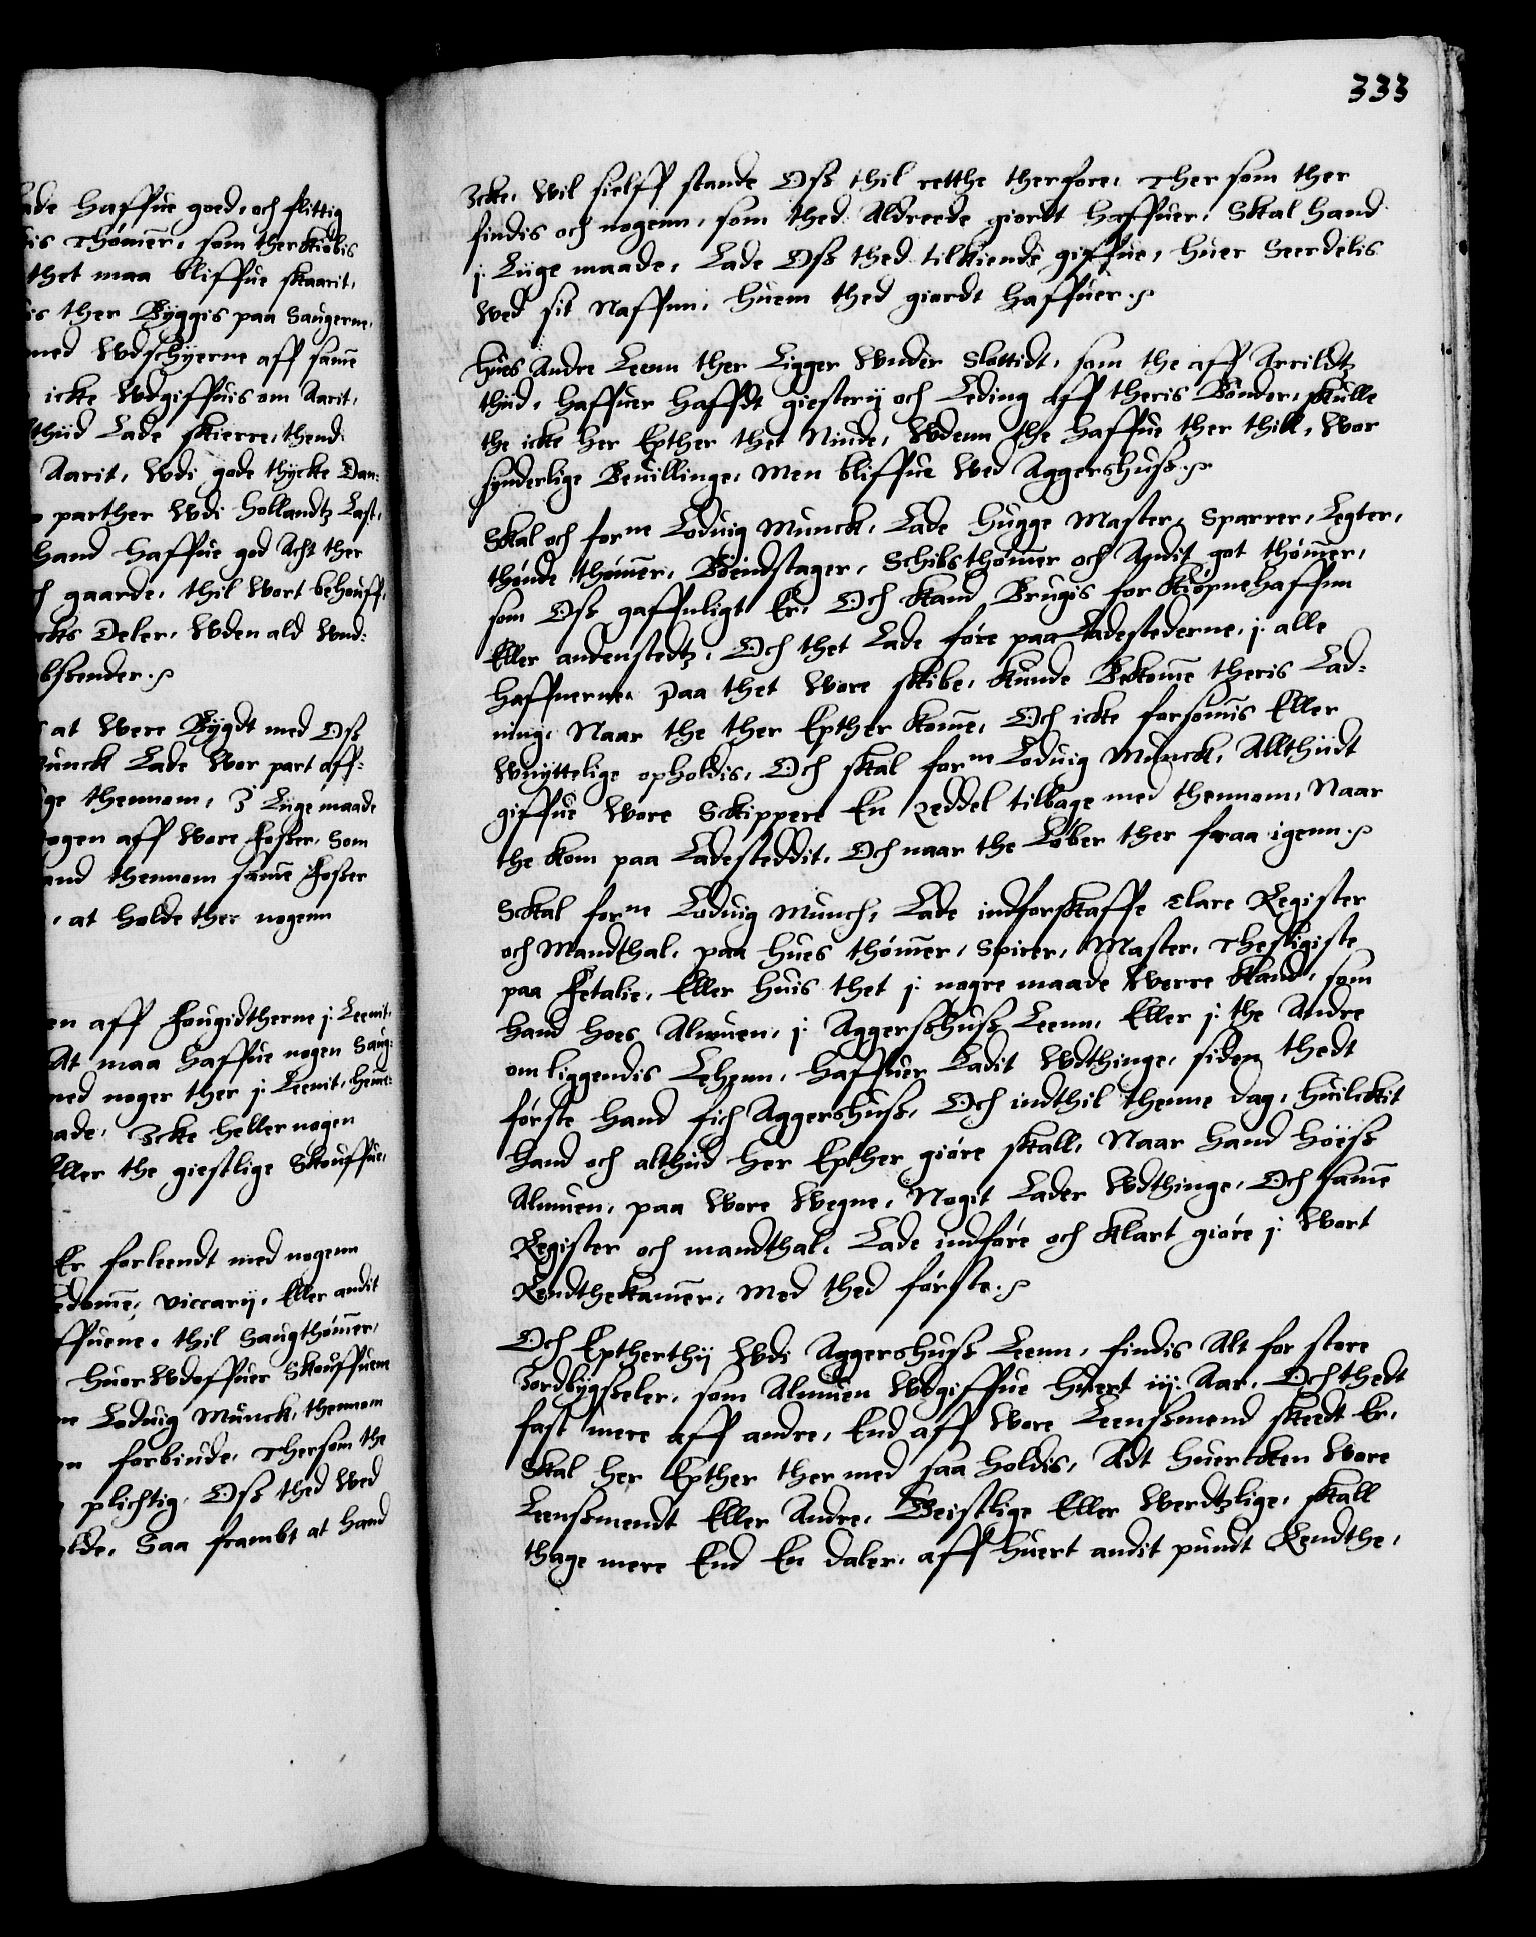 ade Haffue goed, och flittig
is Thømer, som ther kiøbis
thet maa bliffue skaarit,
is ther Bÿggis paa Saugerne,
med Wdschÿerne aff same
icke Wdgiffuis om Aarit,
thiid Lade skierre, thend
Aarit, Wdi gode thÿcke Dan=
parther Wdi Hollandtz Last,
hand Haffue god Acht ther
gaarde, thil Wort behouff,
Deler, Wden ald Wnd=

at Were Bÿgdt med Oss
unck Lade Wor part aff=
ge thennom, I Liigemaade
ogen aff Wore Fosser, Som
and thennom same Fosser
at holde ther nogenn
en aff Fougidtherne j Leenit,
At maa Haffue nogen Saug=
med noger ther j Leenit,
ade, Icke heller nogen
Eller the giestlige Skouffue,
Er forleendt med nogenn
dome, Viccarij, Eller andit
ffuene, thil Saugthømer,
Huor Wdoffuer Skouffuene
Loduig Munck, thennom
forbinde, Thersom the
plichtig, Oss thed Wed
olde, Saa frambt at Hand
333
Icke, Wil sielff stande Oss thil retthe therfore, Ther som ther
findis och nogenn, som thed Aldreede giordt Haffuer, Skal Hand
j Liige maade, Lade Oss thed tilkiende giffue, Huer Seerdelis
Wed sit Naffnn, Huem thed giordt Haffuer.
Hues Andre Leenn ther Ligger Wnder Slottidt, som the aff Arrildtz
thiid, Haffuer Haffdt giesterij och Leding aff theris Bønder, skulle
the icke Her Epther thet Niude, Wdenn the Haffue ther thill, Wor
sÿnderlige Beuillinge, Men bliffue Wed Aggershuss.
Skal och forne Loduig Munck, Lade Hugge Master, Sparrer, Legter,
thønde thømer, Bøendstager, Schibsthømer och Andit got thømer,
som Oss gaffnligt Er, Och kand Brugis for Kiøpnehaffnn
Eller andenstedtz, Och thet Lade føre paa Ladestederne, j alle
Haffnerne, Paa thet Wore skibe, kunde Bekome theris Lad=
ning, Naar the ther Epther kome, Och icke forsomis Eller
Wnÿttelige opholdis, Och skal forne Loduig Munck, Allthiidt
giffue Wore Skippere En Zeddel tilbage med thennom, Naar
the kom paa Ladesteddit, Och naar the Løber ther fraa igenn.
Skal forne Loduig Munck, Lade indforskaffe Clare Register
och Mandthal, paa Hues thømer, Spirer, Master, Thesligiste
paa Fetalie, Eller Huis thet j nogre maade Werre kand, som
Hand Hoes Almuen, j Aggersshuss Leenn, Eller j the Andre
omliggendis Lehenn, Haffuer Ladit Wdthinge, siden thedt
første Hand fich Aggershuss, Och indthil thenne dag, Huilckit
Hand och althiid Her Epther giøre skall, Naar Hand Hoess
Almuen, paa Wore Wegne, Nogit Lader Wdthinge, Och same
Register och mandthal, Lade indføre och klart giøre j Wort
Rendthekamer, Med thed første.
Och Eptherthij Wdi Aggershuss Leenn, findis Alt for store
Jordbÿgsseler, som Almuen Wdgiffue Huert iij: Aar, Och thedt
fast mere aff andre, End aff Wore Leenssmend skeedt Er,
Skal Her Epther ther med saa Holdis, Adt Huercken Wore
Leenssmendt Eller Andre, Geistlige Eller Werdtzlige, skall
thage mere End En daler, aff Huert andit pundt Rendthe,